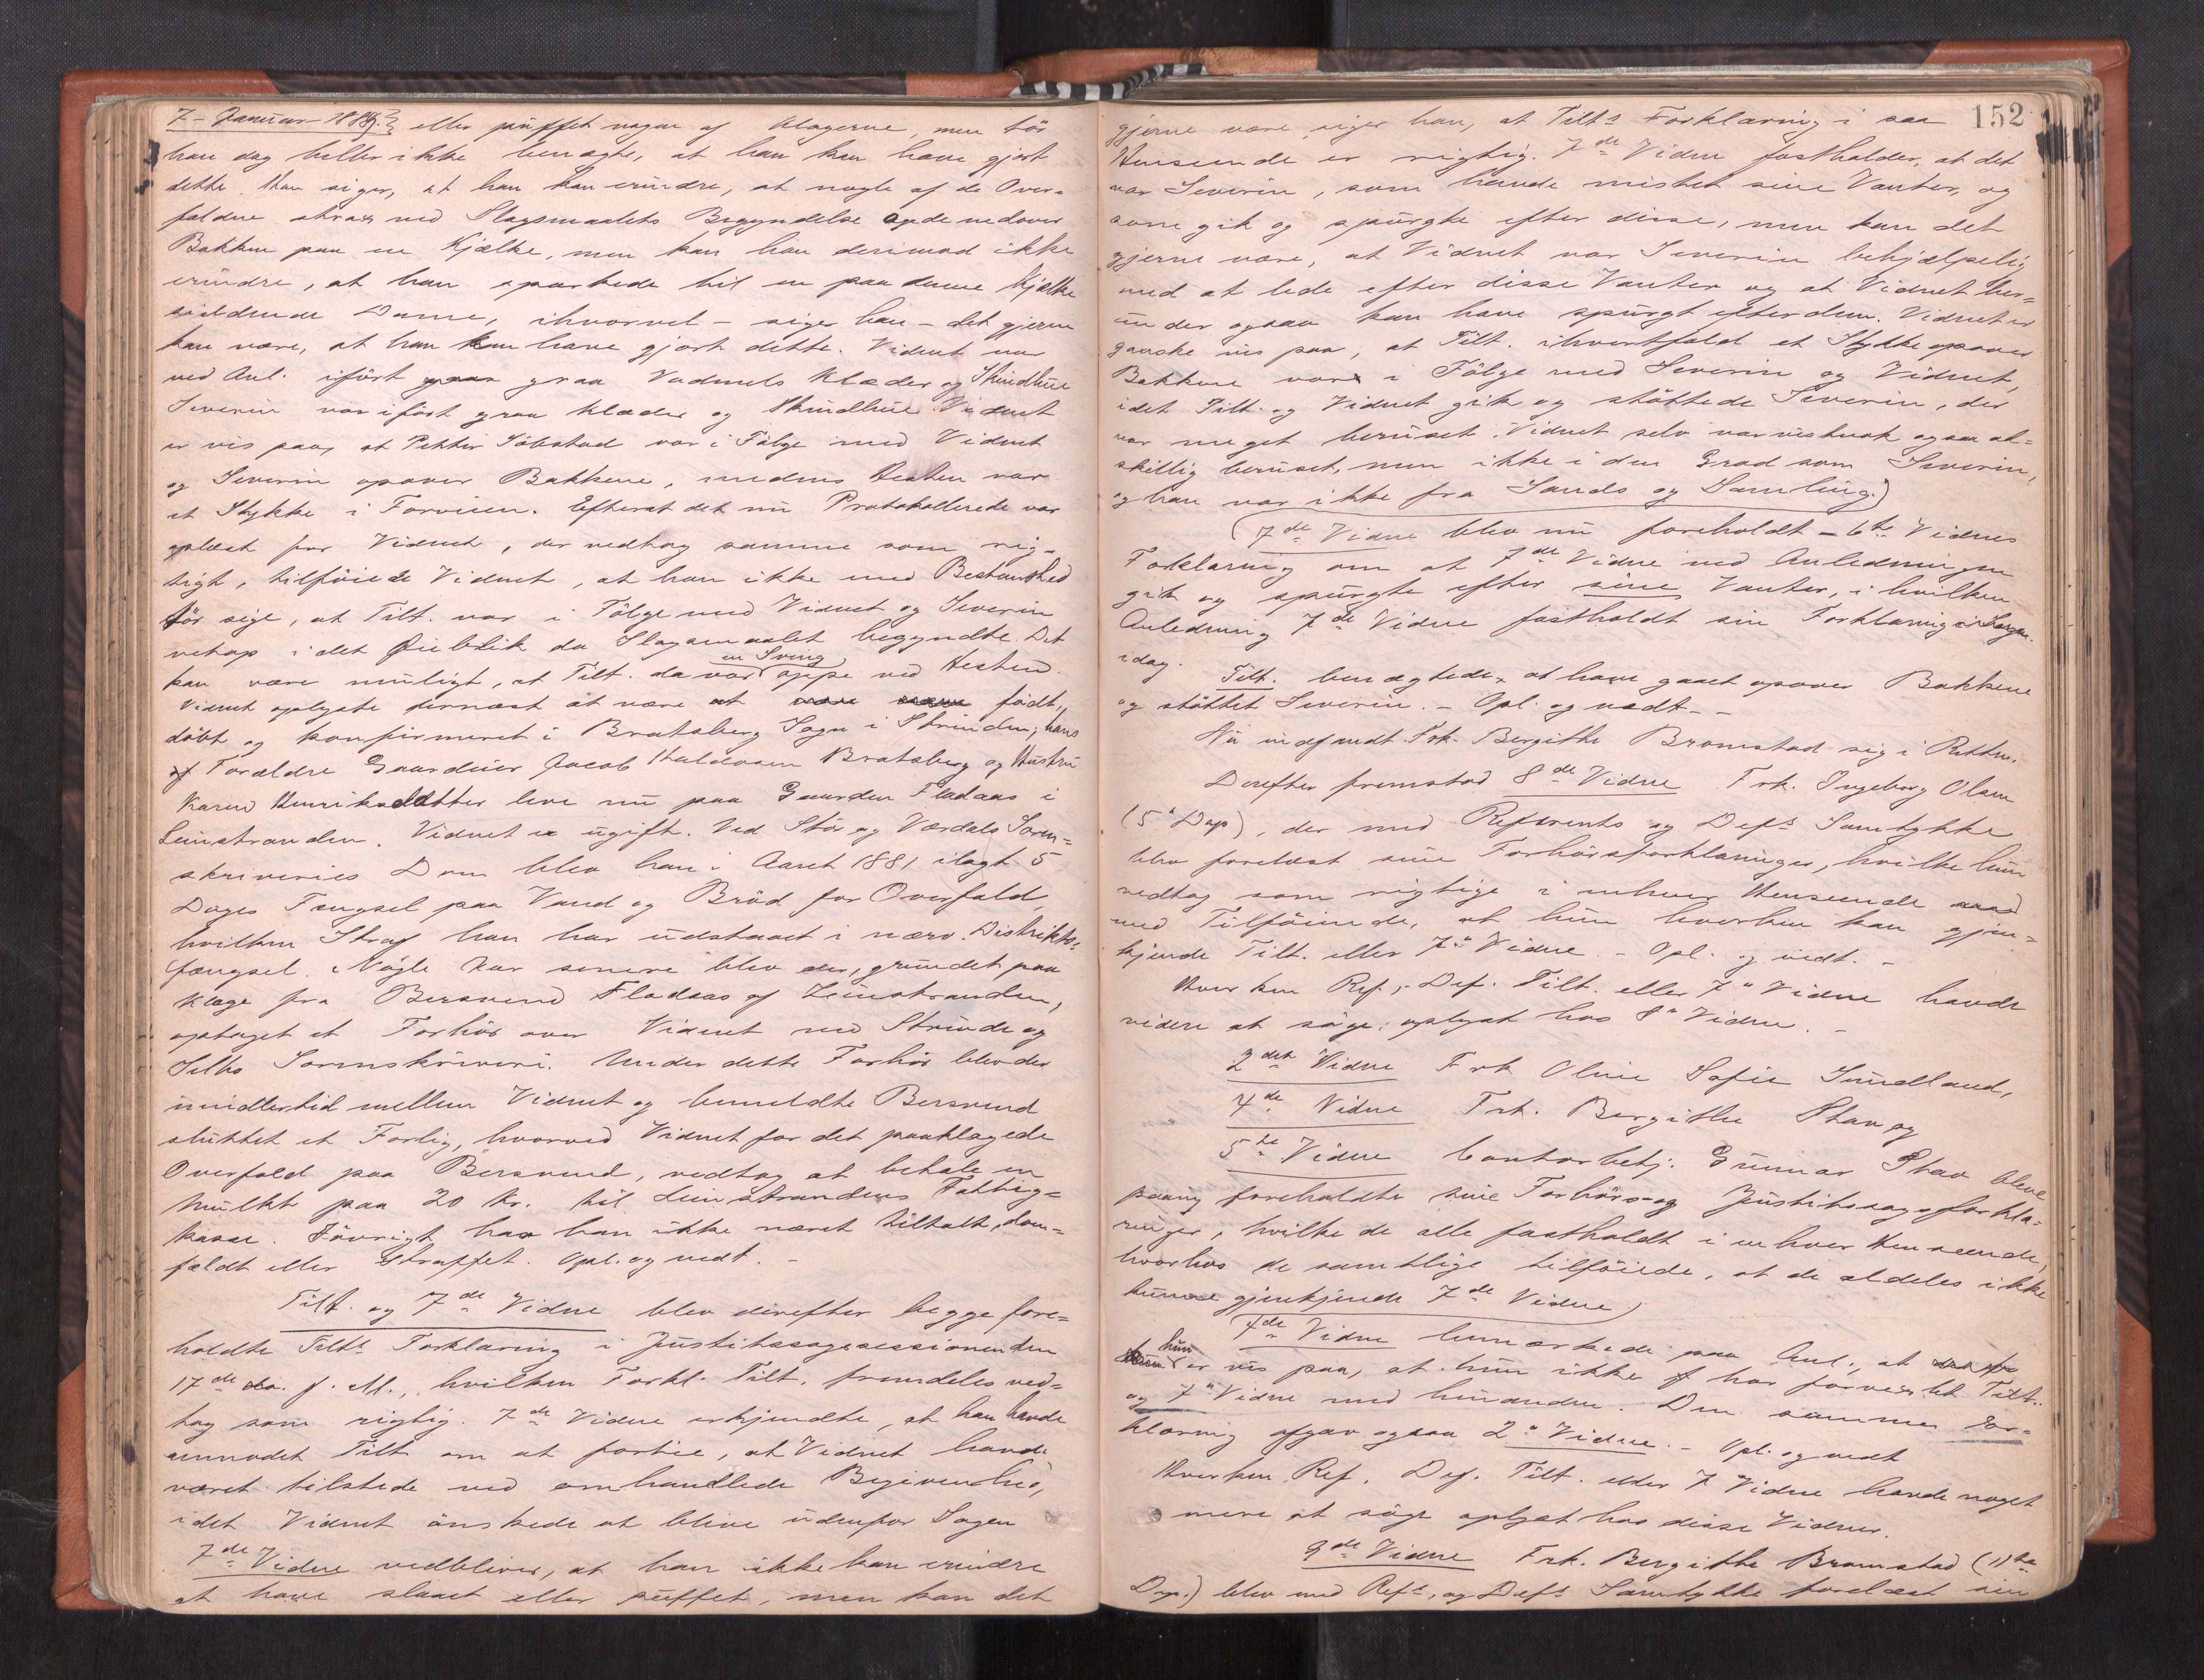 7 - Januar - 1889. eller puffet nogen af Klagerne, men tör
han dog heller ikke benægte, at han kan have gjort
dette. Han siger, at han kan erindre, at nogle af de Over-
faldne strax ved Slagsmaalets Begyndelse agede nedover
Bakken paa en Kjælke, men kan han derimod ikke
erindre, at han sparkede til en paa denne Kjælke
siddende Dame, ihvorvel - siger han - det gjerne
kan være, at han kan have gjort dette. Vidnet var
ved Anl. iført graa Vadmels Klæder og Skindhue
Severin var iført graa Klæder og Skindhue. Vidnet
er vis paa, at Petter Solstad var i Fölge med Vidnet
og Severin opover Bakkene, medens Hesten var
et Stykke i Forveien. Efterat det nu Protokollerede var
oplæst for Vidnet, der vedtog samme som rig-
tigt, tilföiede Vidnet, at han ikke med Bestemthed
tör sige, at Tilt. var i Fölge med Vidnet og Severin
netop i det Øieblik da Slagsmaalet begyndte. Det
kan være muligt, at Tilt. da var en Sving oppe ved Hesten.
Vidnet oplyste dernæst at være født,
döbt og konfirmeret i Bratsberg Sogn i Strinden; hans
Forældre Gaardmer Jacob Haldorsen Bratsberg og Hustru
Karen Henriksdatter leve nu paa Gaarden Fladaas i
Leinstranden. Vidnet er ugift. Ved Stör og Værdals Soren-
skriveries Dom blev han i Aaret 1881 ilagt 5
Dages Fængsel paa Vand og Bröd for Overfald,
hvilken Straf han har udstaaet i nærv. Distrikts-
fængsel. Nogle Aar senere blev der, grundet paa
Klage fra Bersvend Fladaas af Leinstranden,
optaget et Forhör over Vidnet ved Strinde og
Selbo Sorenskriveri. Under dette Forhör blev der
imidlertid mellem Vidnet og bemeldte Bersvend
sluttet et Forlig, hvorved Vidnet for det paaklagede
Overfald paa Bersvend, vedtog at betale en
Mulkt paa 20 Kr. til Leinstrandens Fattig-
kasse. Forövrigt har han ikke været tiltalt, dom-
fældt eller Straffet. Opl. og vedt. -
Tilt. og 7de Vidne blev derefter begge fore-
holdte Tilts Forklaring i Justitssagssessionen den
17de f. M., hvilken Forkl. Tilt. fremdeles ved-
tog som rigtig. 7de Vidne erkjendte, at han havde
anmodet Tilt. om at fortie, at Vidnet havde
været tilstede ved omhandlede Begivenhed,
idet Vidnet önskede at blive udenfor Sagen
7de Vidne vedbliver, at han ikke kan erindre
at have slaaet eller puffet, men kan det
152
gjerne være, siger han, at Tilts Forklaring i saa
Henseende er rigtig. 7de Vidne fastholder, at det
var Severin, som havde mistet sine Vanter, og
som gik og spurgte efter disse, men kan det
gjerne være, at Vidnet var Severin behjælpelig
med at lede efter disse Vanter og at Vidnet her-
under ogsaa kan have spurgt efter dem. Vidnet er
ganske vis paa, at Tilt. ihvertfald et Stykke opover
Bakkene var i Fölge med Severin og Vidnet,
idet Tilt. og Vidnet gik og stöttede Severin, der
var meget beruset. Vidnet selv var vistnok ogsaa at-
skillig beruset, men ikke i den Grad som Severin,
og han var ikke fra Sands og Samling.)
(7de Vidne blev nu foreholdt - 6te Vidnes
Forklaring om at 7de Vidne ved Anledningen
gik og spurgte efter sine Vanter, i hvilken
Anledning 7de Vidne fastholdt sin Forklaring i Sagen
idag.
Tilt. benægtede, at have gaaet opover Bakkene
og stöttet Severin. - Opl. og vedt. -
Nu indfandt Frk. Bergithe Bromstad sig i Retten.
Derefter fremstod 8de Vidne Frk. Ingeborg Olsen
(5" Dep), der med Referents og Defs Samtykke
blev forelæst sine Forhörsforklaringer, hvilke hun
vedtog som rigtige i enhver Henseende
med Tilföiende, at hun hverken kan gjen-
kjende Tilt. eller 7" Vidne. - Opl. og vedt. -
Hverken Ref., Def. Tilt. eller 7" Vidne havde
videre at söge oplyst hos 8" Vidne. -
2det Vidne Frk Oline Sofie Sundland,
4de Vidne Frk. Bergithe Stav og
5te Vidne Contorbetj. Gunnar Stav bleve
paany foreholdte sine Forhörs- og Justitssagsforkla-
ringer, hvilke de alle fastholdt i enhver Henseende,
hvorhos de samtlige tilföiede, at de aldeles ikke
kunne gjenkjende 7de Vidne)
4de Vidne bemærkede paa Anl., at
hun er vis paa, at hun ikke har forvexlet Tilt.
og 7" Vidne med hinanden. Den samme For-
klaring afgav ogsaa 2" Vidne. - Opl. og vedt
Hverken Ref. Def. Tilt. eller 7 Vidne havde noget
mere at söge oplyst hos disse Vidner.
9de Vidne Frk. Bergithe Bromstad (11te
Dep.) blev med Refs, og Defs Samtykke forelæst sin